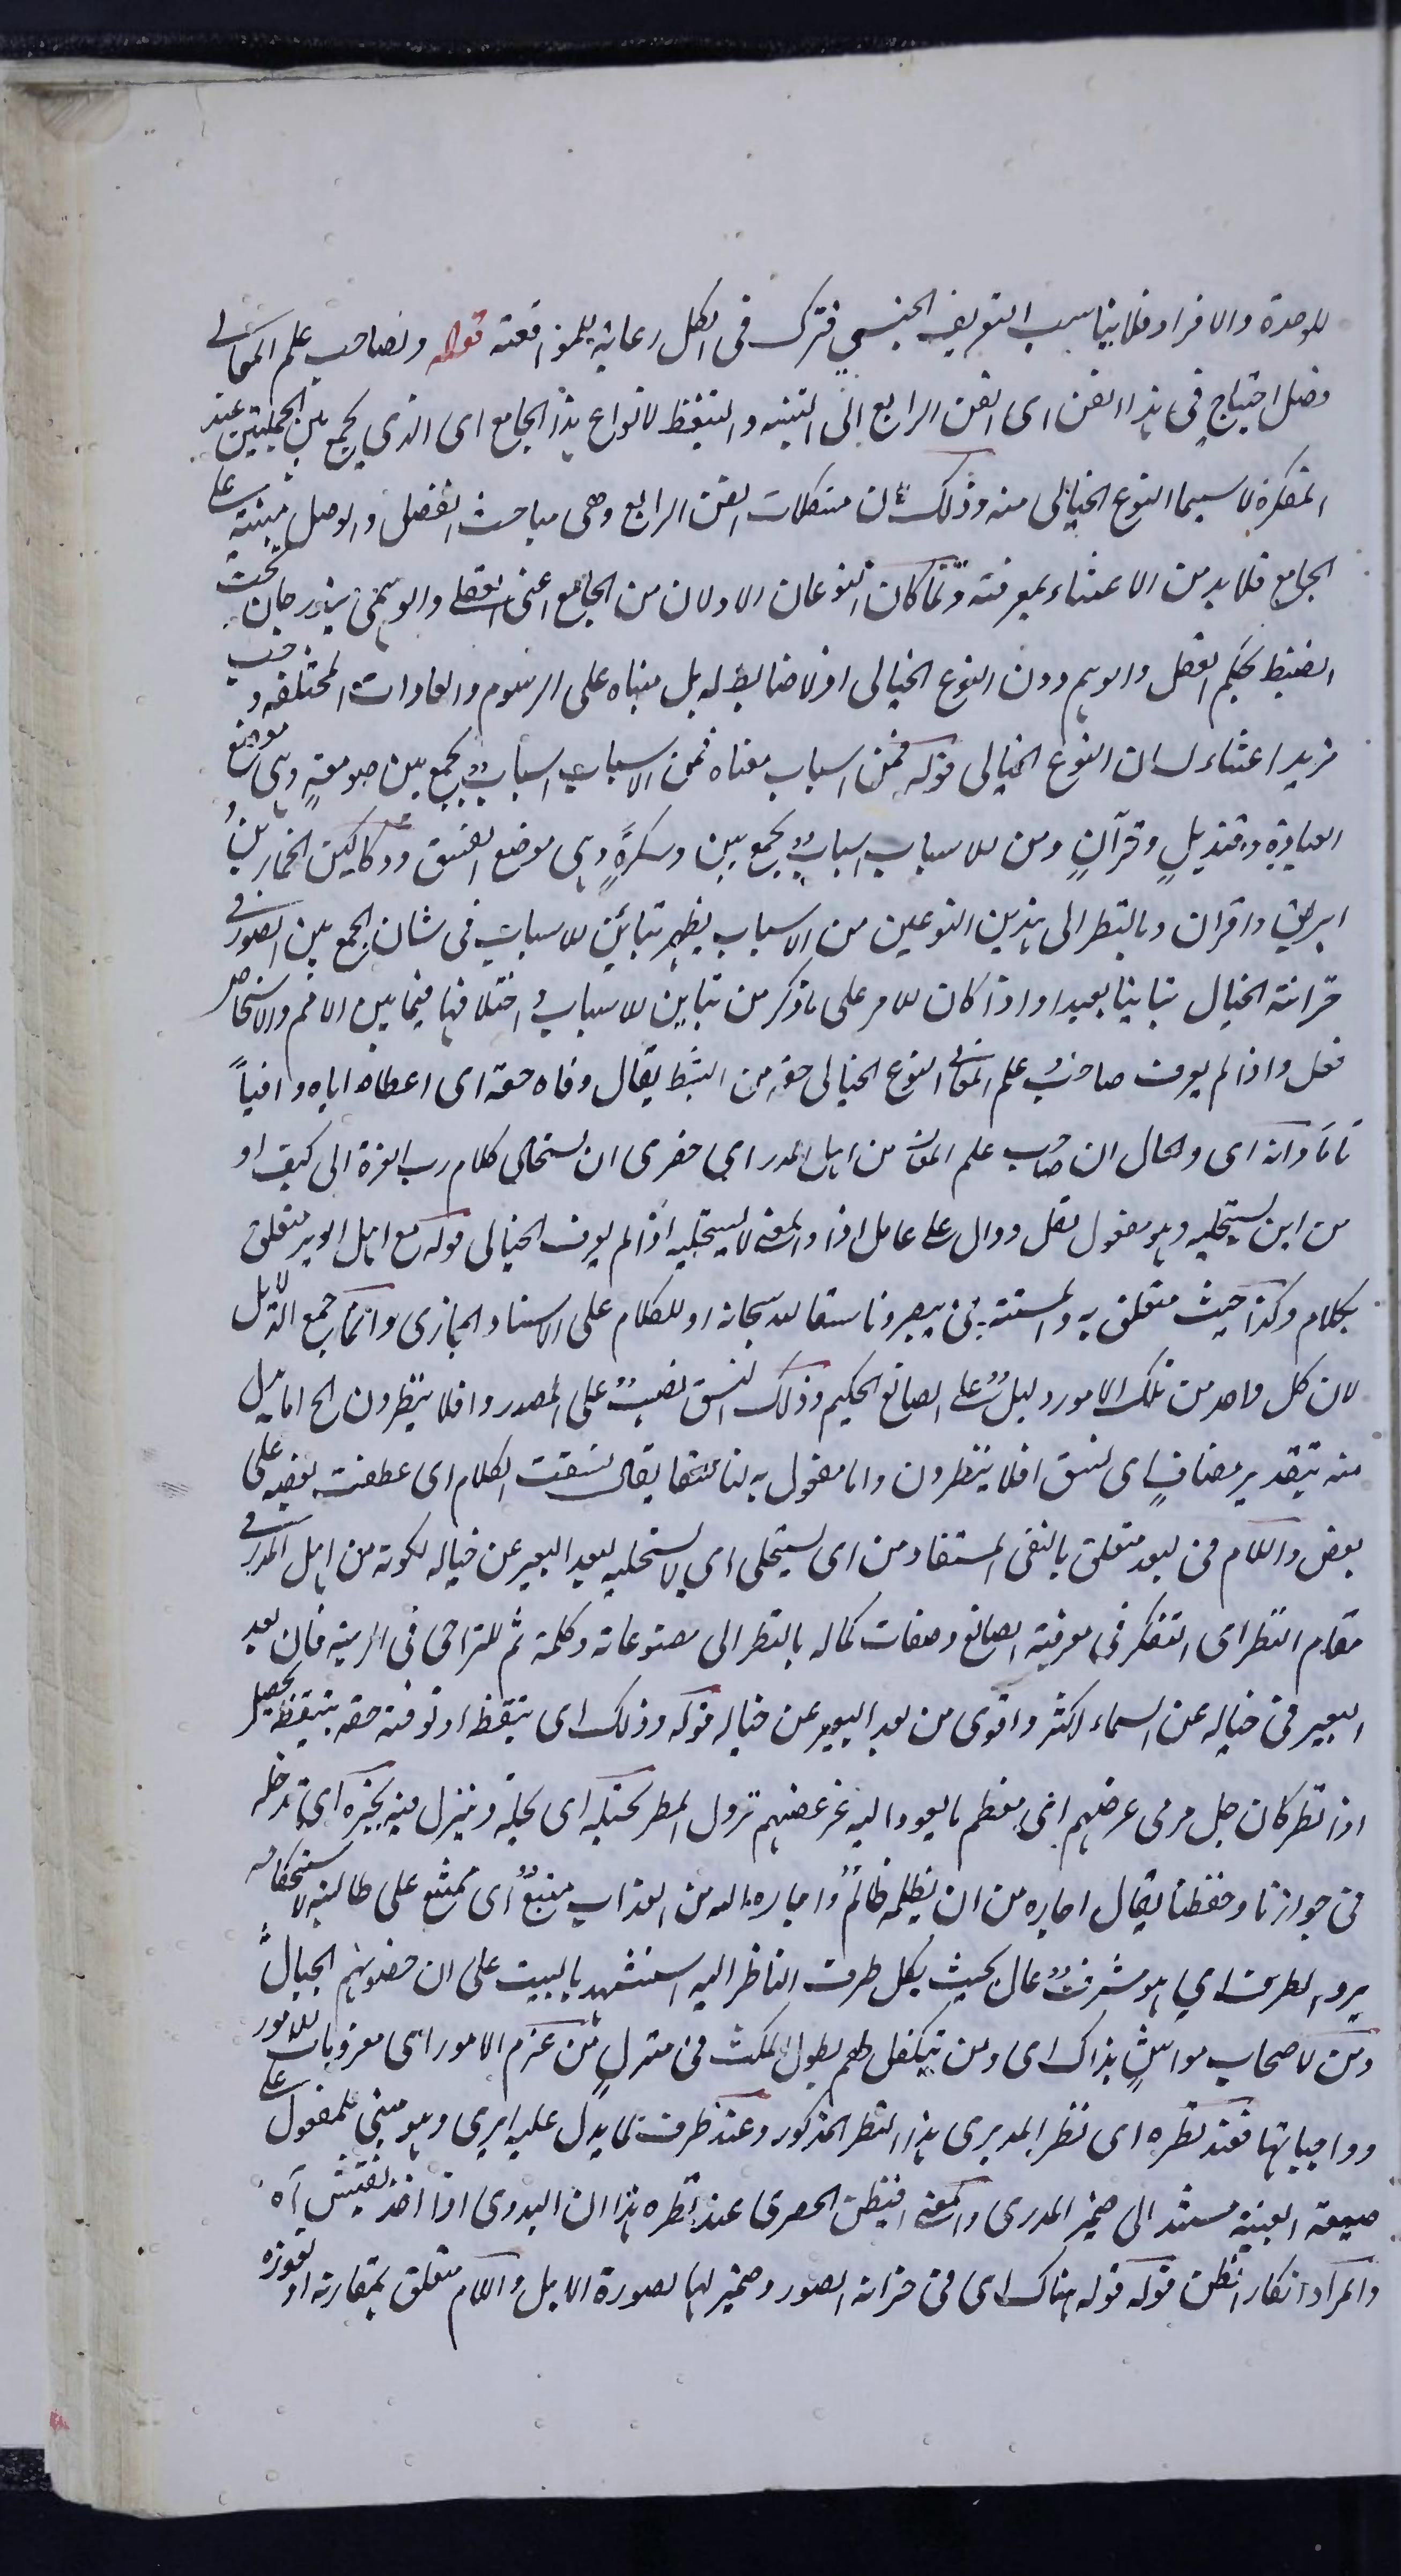 للوحدة والافراد فلا يناسب التعريف الجنسي فترك فى الكل رعاية للموافقة قوله ولصاحب علم المعانى
فضل احتياج فى هذا الفن اى الفن الرابع الى التنبه والتيقظ لانواع هذا الجامع اى الذى يجمع بين الجملتين عند
المفكرة لا سيما النوع الخيالى منه وذلك لان مشكلات الفن الرابع وهى مباحث الفصل والوصل مبنية على
الجامع فلا بد من الاعتناء بمعرفته ولما كان النوعان الاولان من الجامع اعنى العقلى والوهمى يندرجان تحت
الضبط بحكم العقل والوهم دون النوع الخيالى اذ لا ضابط له بل مبناه على الرسوم والعادات المختلفة وجب
مزيد اعتناء لشان النوع الخيالى قوله فمن اسباب معناه فمن الاسباب اسباب يجمع بين صومعةٍ وهى موضع
العبادة وقنديلٍ وقرآنٍ ومن الاسباب اسبابٌ يجمع بين دسكرةٍ وهى موضع الفسق ودكاكين الخمارين و
ابريق واقران وبالنظر الى هذين النوعين من الاسباب يظهر تباين الاسباب فى شان الجمع بين الصور فى
خزانة الخيال تباينا بعيدا واذا كان الامر على ما ذكر من تباين الاسباب واختلافها فيما بين الامم والاشخاص
فقل واذا لم يوف صاحب علم المعانى النوع الخيالى حقه من التيقظ يقال وفاه حقه اى اعطاه اياه وافياً
تاما وانه اى والحال ان صاحب علم المعانى من اهل المدر اى حضرى ان يستحلى كلام رب العزة الى كيف او
من اين يستحليه وهو مفعول نقل ودال على عامل اذا والمعنى لا يستحليه اذا لم يوف الخيالى قوله مع اهل الوبر متعلق
بكلام وكذا حيث متعلق به والمستتر فى يبصرونا سقا لله سبحانه او للكلام على الاسناد المجازى وانما جمع الدلائل
لان كل واحد من تلك الامور دليلٌ على الصانع الحكيم وذلك النسق نصبٌ على المصدر وافلا ينظرون الخ اما بدل
منه بتقدير مضافٍ اى نسق افلا ينظرون واما مفعول به لناسقا يقال نسقت الكلام اى عطفت بعضه على
بعض واللام فى لبعد متعلق بالنفى المستفاد من اى يستحلى اى لا يستحليه لبعد البعير عن خياله لكونه من اهل المدر فى
مقام النظر اى التفكر فى معرفة الصانع وصفات كماله بالنظر الى مصنوعاته وكلمة ثم للتراخى فى الرتبة فان بعد
البعير فى خياله عن السماء اكثر واقوى من بعد البعير عن خياله قوله وذلك اى تيقظ او توفية حقه بتيقظ تحصيل
اذا نظر كان جل مرمى غرضهم اى معظم ما يعود اليه غرضهم نزول المطر
فى جوارنا وحفظنا يقال اجاره من ان يظلمه ظالمٌ واجاره الله من العذاب منيعٌ اى ممتنع على طالبيه لاستحكامه
يرد الطرف اى هو مشرفٌ عالٍ بحيث يكل طرف الناظر اليه استشهد بالبيت على ان حصونهم الجبال
ومن لاصحاب مواشٍ بذاك اى ومن يتكفل لهم بطول المكث فى منزلٍ من عزم الامور اى معزومات الامور
وواجباتها فعند نظره اى نظر المدرى هذا النظر المذكور وعند ظرف لما يدل عليه ايرى وهو مبنى للمفعول على
صيغة الغيبة مسند الى ضمير المدرى والمعنى افيظن الحضرى عند نظره هذا ان البدوى اذا اخذ يفتش آه
والمراد انكار الظن قوله قوله هناك اى فى خزانة الصور وضمير لها لصورة الابل واللام متعلق بمقارنه او لعوزه